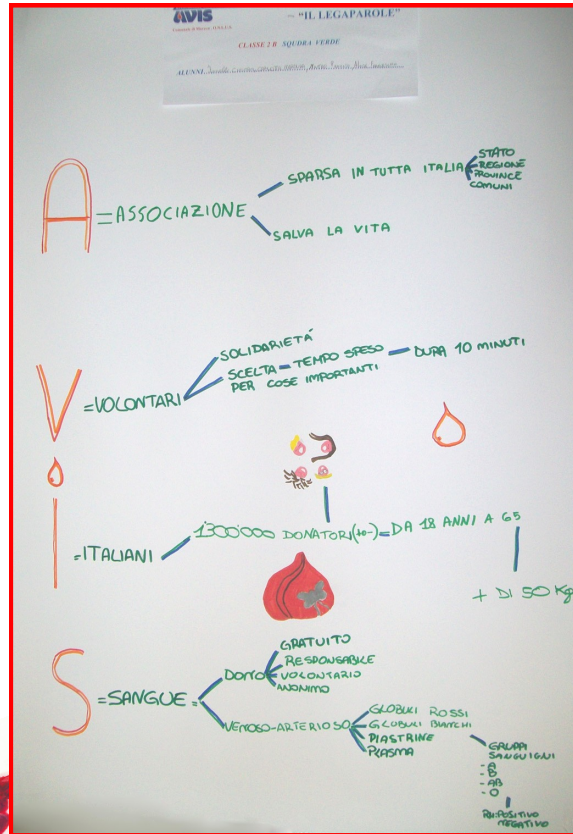 AVIS
~ "IL LEGAPAROLE"
CLASSE 2 B SQUDRA VERDE
ALUNNI
A = ASSOCIAZIONE
SPARSA IN TUTTA ITALIA
STATO
REGIONE
PROVINCE
COMUNI
SALVA LA VITA
V = VOLONTARI
SOLIDARIETÁ
SCELTA = TEMPO SPESO
PER COSE IMPORTANTI
DURA 10 MINUTI
I = ITALIANI
1'300'000 DONATORI (+o-) = DA 18 ANNI A 65
+ DI 50 Kg
S = SANGUE =
DONO
GRATUITO
RESPONSABILE
VOLONTARIO
ANONIMO
VENOSO-ARTERIOSO
GLOBULI ROSSI
GLOBULI BIANCHI
PIASTRINE
PLASMA
GRUPPI
SANGUIGNI
- A
- B
- AB
- O
RH: POSITIVO
NEGATIVO